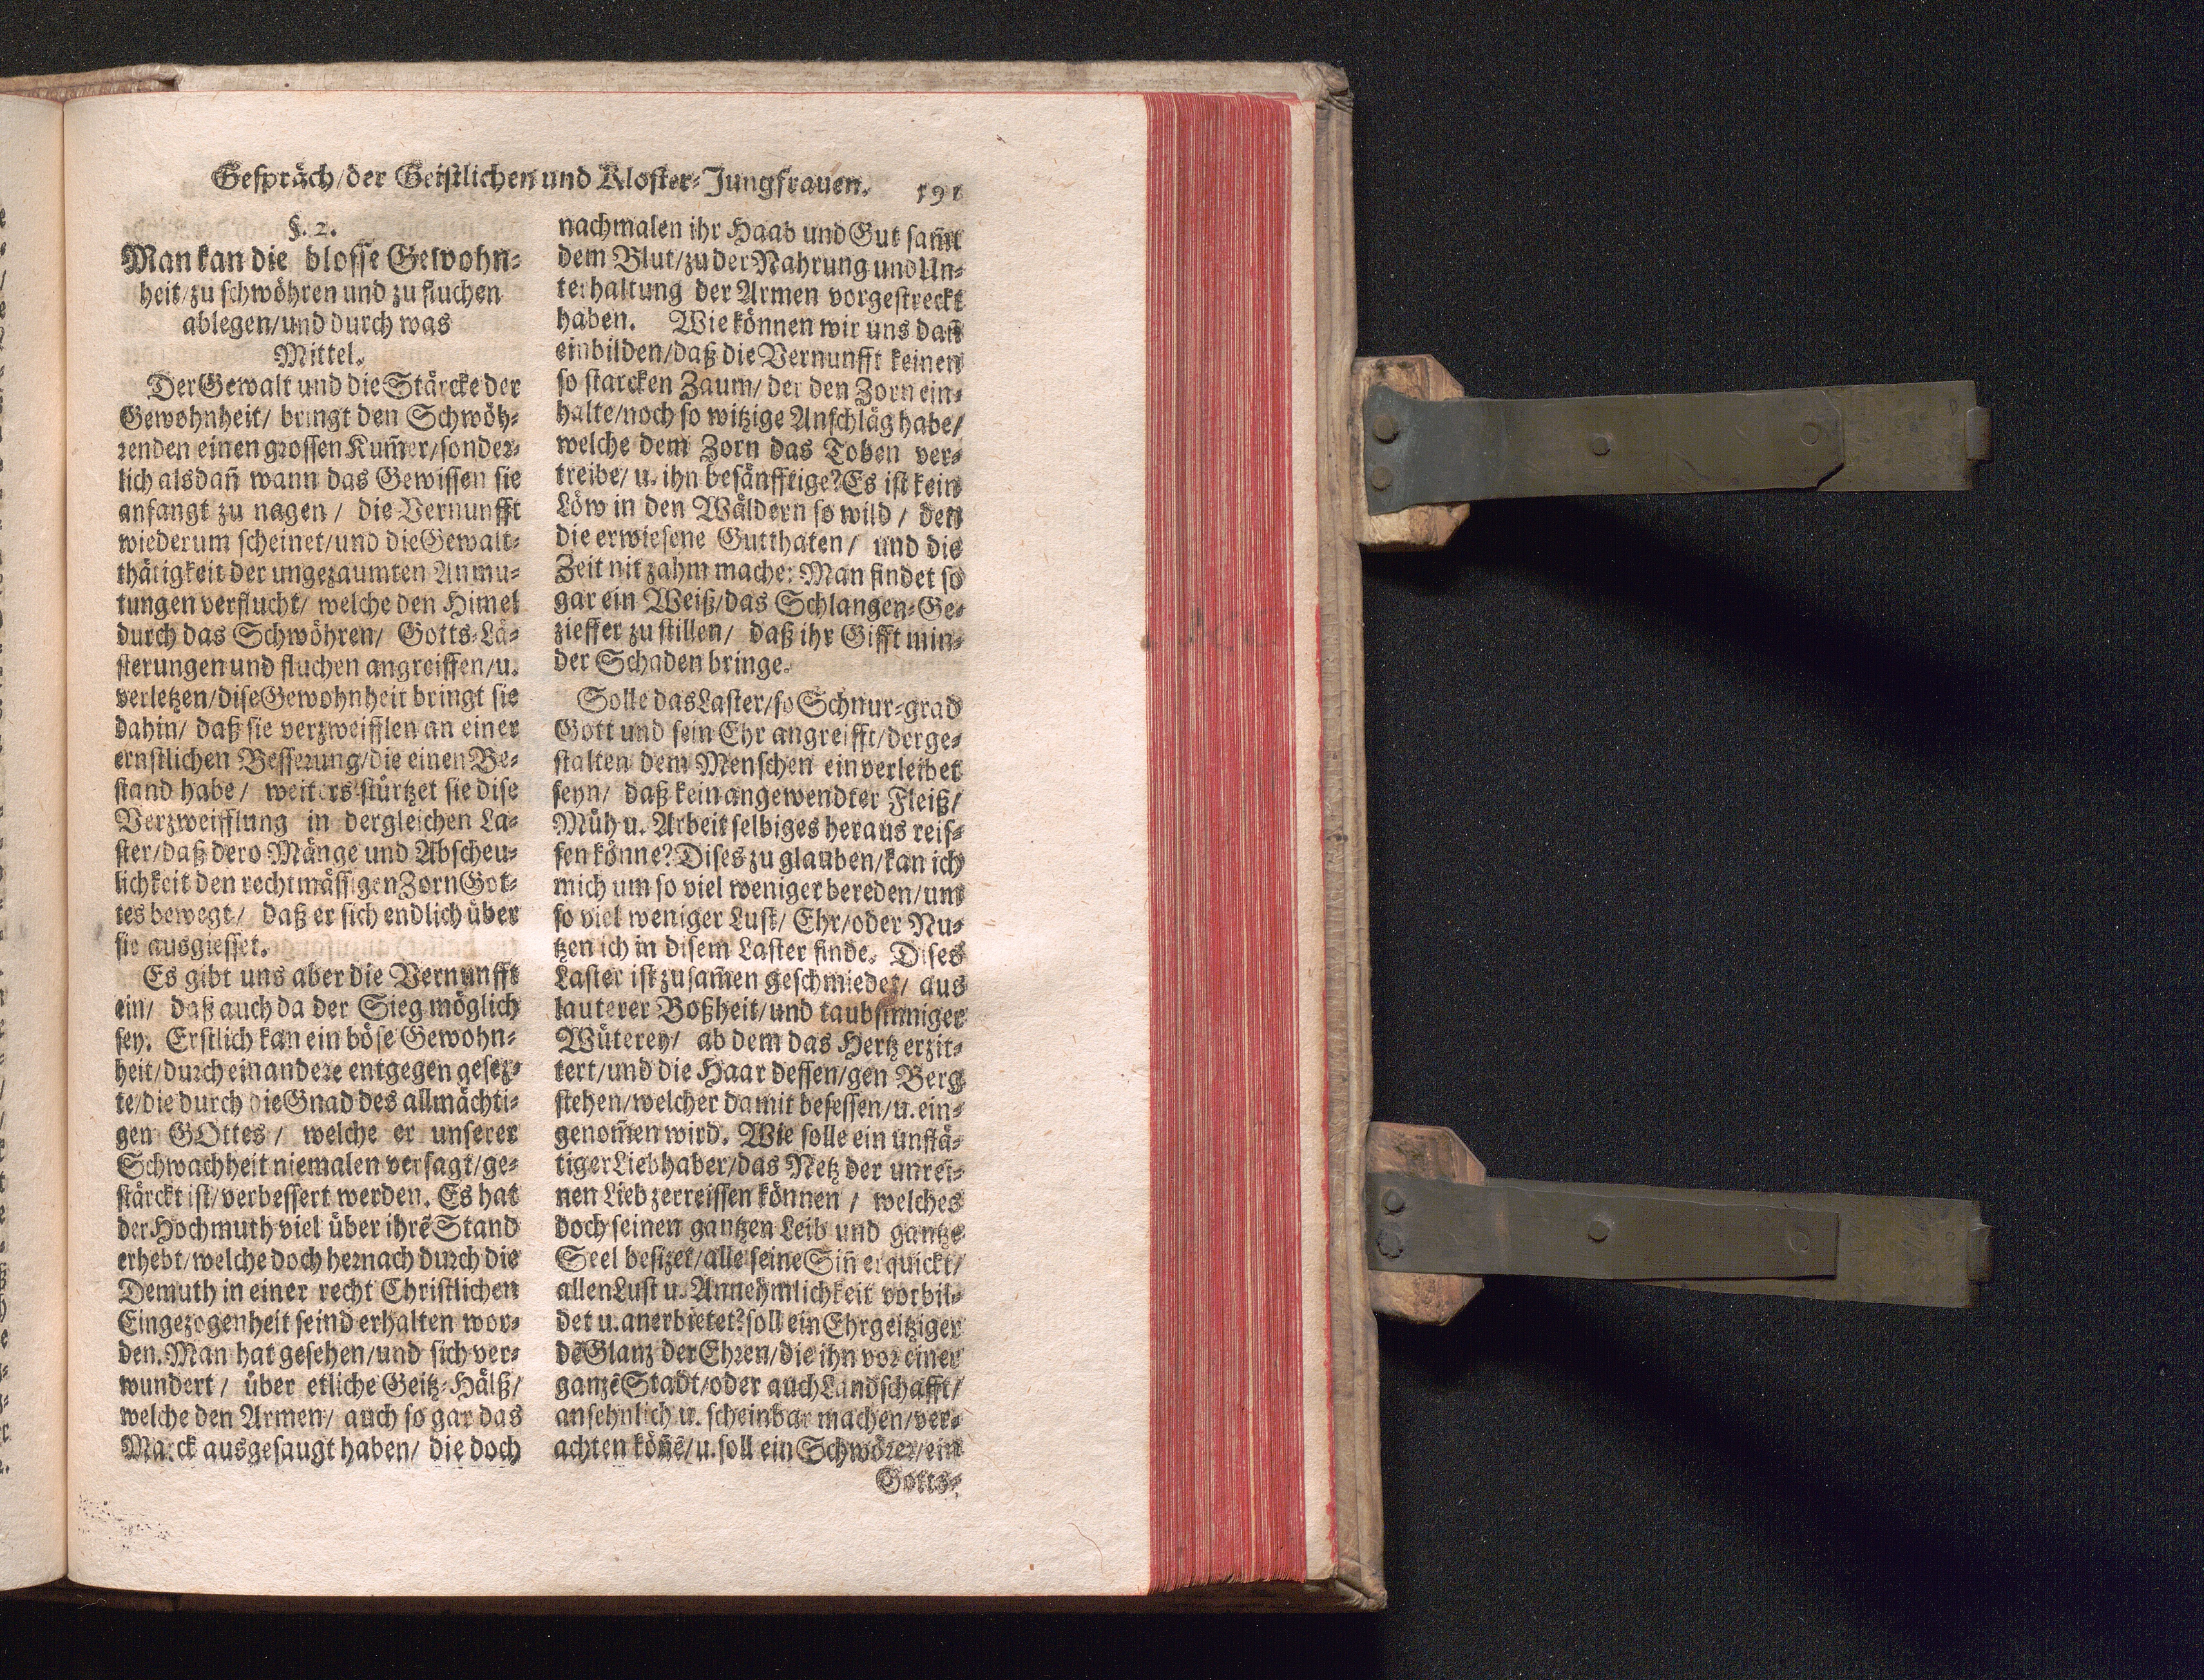 Gespräch/der Geistlichen und Kloster-Jungfrauen. 191
§. 2.
Man kan die blosse Gewohn-
heit/zu schwöhren und zu fluchen
ablegen/und durch was
Mittel.
Der Gewalt und die Stärcke der
Gewohnheit/ bringt den Schwöh-
renden einen grossen Kum̃er/sonder-
lich alsdañ wann das Gewissen sie
anfangt zu nagen / die Vernunfft
wiederum scheinet/und die Gewalt-
thätigkeit der ungezaumten Anmu-
tungen verflucht/ welche den Himel
durch das Schwöhren/ Gotts-Lä-
sterungen und fluchen angreiffen/u.
verletzen/dise Gewohnheit bringt sie
dahin/ daß sie verzweifflen an einer
ernstlichen Besserung/die einen Be-
stand habe / weiters stürtzet sie dise
Verzweifflung in dergleichen La-
ster/daß dero Mänge und Abscheu-
lichkeit den rechtmässigen Zorn Got-
tes bewegt/ daß er sich endlich über
sie ausgiesset.
Es gibt uns aber die Vernunfft
ein/ daß auch da der Sieg möglich
sey. Erstlich kan ein böse Gewohn-
heit/durch ein andere entgegen gesez-
te/die durch die Gnad des allmächti-
gen GOttes / welche er unserer
Schwachheit niemalen versagt/ge-
stärckt ist/verbessert werden. Es hat
der Hochmuth viel über ihrẽ Stand
erhebt/welche doch hernach durch die
Demuth in einer recht Christlichen
Eingezogenheit seind erhalten wor-
den. Man hat gesehen/und sich ver-
wundert / über etliche Geitz-Hälß/
welche den Armen/ auch so gar das
Marck ausgesaugt haben/ die doch
nachmalen ihr Haab und Gut sam̃t
dem Blut/zu der Nahrung und Un-
terhaltung der Armen vorgestreckt
haben. Wie können wir uns dañ
einbilden/daß die Vernunfft keinen
so starcken Zaum/ der den Zorn ein-
halte/noch so witzige Anschläg habe/
welche dem Zorn das Toben ver-
treibe/ u. ihn besänfftige? Es ist kein
Löw in den Wäldern so wild / den
die erwiesene Gutthaten/ und die
Zeit nit zahm mache: Man findet so
gar ein Weiß/das Schlangen-Ge-
zieffer zu stillen/ daß ihr Gifft min-
der Schaden bringe.
Solle das Laster/so Schnur-grad
Gott und sein Ehr angreifft/derge-
stalten dem Menschen einverleibet
seyn/ daß kein angewendter Fleiß/
Müh u. Arbeit selbiges heraus reis-
sen könne? Dises zu glauben/kan ich
mich um so viel weniger bereden/um
so viel weniger Lust/ Ehr/oder Nu-
tzen ich in disem Laster finde. Dises
Laster ist zusam̃en geschmiedet/ aus
lauterer Boßheit/und taubsinniger
Wüterey/ ab dem das Hertz erzit-
tert/und die Haar dessen/gen Berg
stehen/welcher damit besessen/u. ein-
genom̃en wird. Wie solle ein unflä-
tiger Liebhaber/das Netz der unrei-
nen Lieb zerreissen können / welches
doch seinen gantzen Leib und gantze
Seel besizet/alle seine Siñ erquickt/
allen Lust u. Annehmlichkeit vorbil-
det u. anerbietet? soll ein Ehrgeitziger
dẽ Glanz der Ehren/die ihn vor einer
ganzẽ Stadt/oder auch Landschafft/
ansehnlich u. scheinbar machen/ver-
achten köñẽ/u. soll ein Schwörer/ein
Gotts-